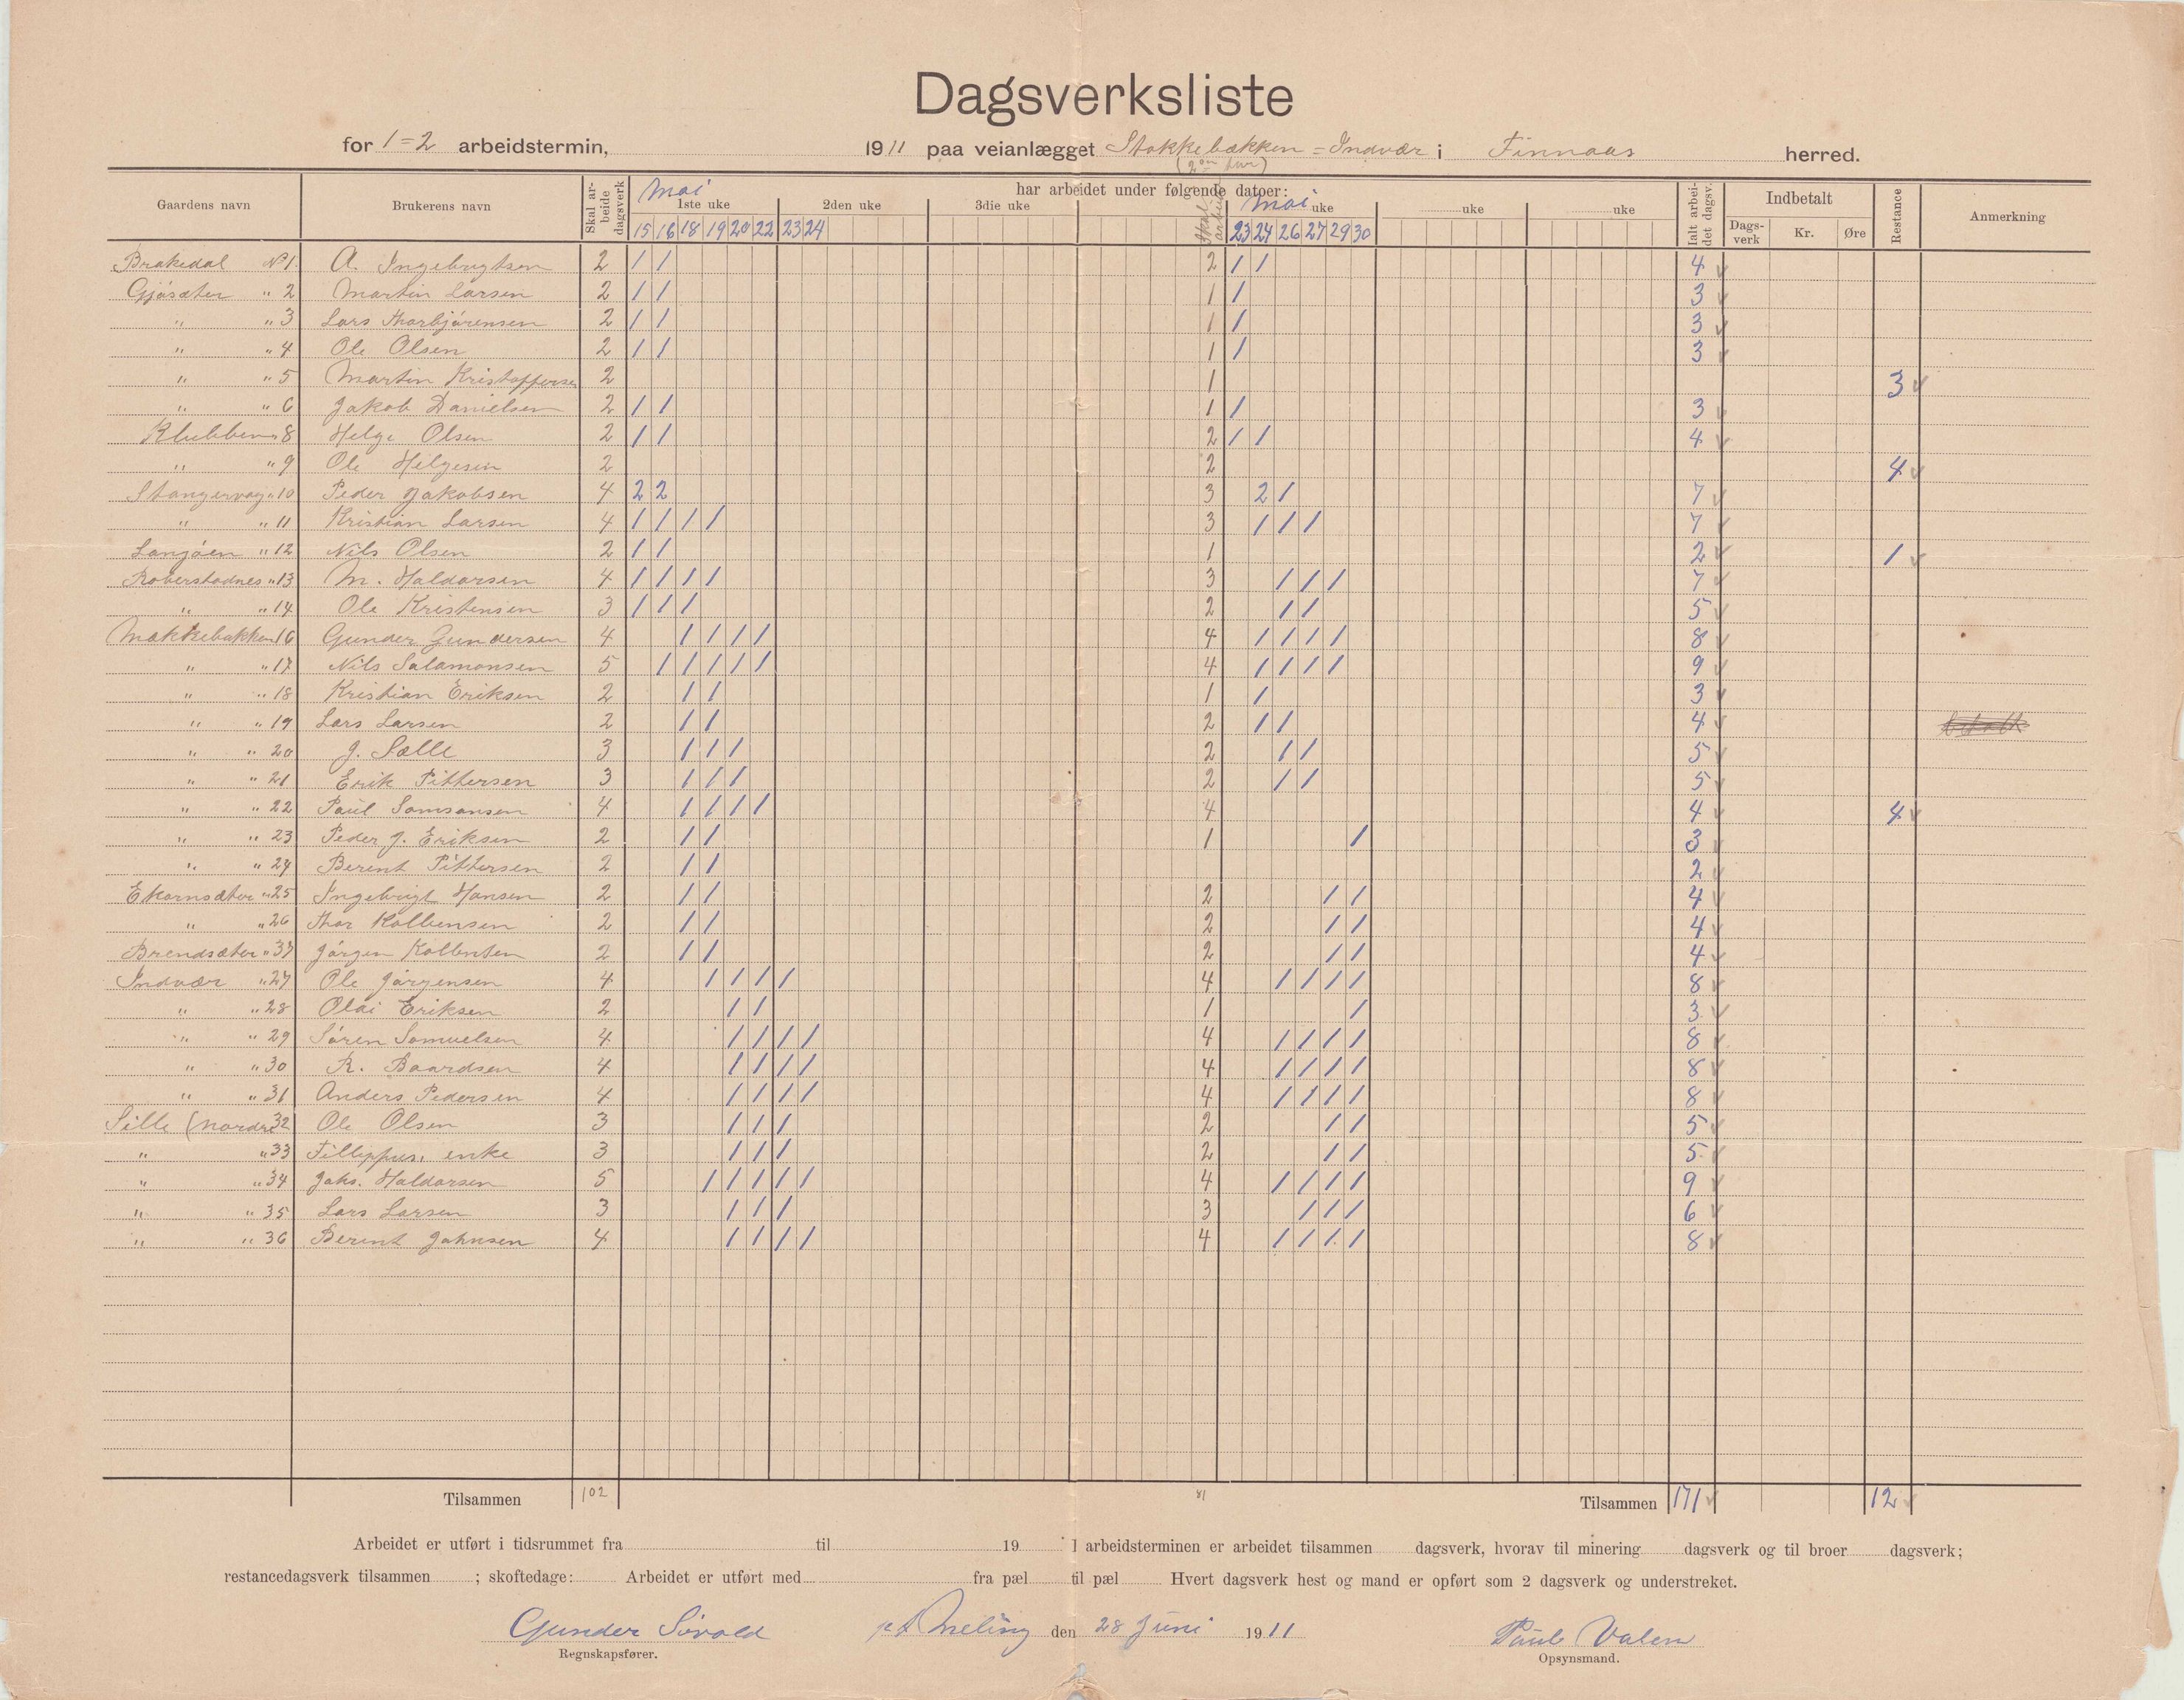 Dagsverksliste
for 1=2 arbeidstermin, 1911 paa veianlægget Stokkebækken = Indvær i Finnaas herred.
Gaardens navn Brukerens navn Skal arbeide dagsverk har arbeidet under følgende datoer: Ialt arbeidet dagsv. Indbetalt Restance Anmerkning
Mai 1ste uke 2den uke 3die uke Skal arbeide Mai uke uke uke Dagsverk Kr. Øre
15 16 18 19 20 22 23 24 23 24 26 27 29 30
Brakedal No 1 A. Ingebrigtsen 2 / / 2 / / 4 ✓
Gjøsæter " 2 Martin Larsen 2 / / 1 / 3 ✓
" " 3 Lars Thorbjørensen 2 / / 1 / 3 ✓
" " 4 Ole Olsen 2 / / 1 / 3 ✓
" " 5 Martin Kristoffersen 2 1 3 ✓
" " 6 Jakob Danielsen 2 / / 1 / 3 ✓
Klubben " 8 Helge Olsen 2 / / 2 / / 4 ✓
" " 9 Ole Helgesen 2 2 4 ✓
Stangervag " 10 Peder Jakobsen 4 2 2 3 2 / 7 ✓
" " 11 Kristian Larsen 4 / / / / 3 / / / 7 ✓
Langøen " 12 Nils Olsen 2 / / 1 2 ✓ 1 ✓
Roberstadnes " 13 M. Haldorsen 4 / / / / 3 / / / 7 ✓
" " 14 Ole Kristensen 3 / / / 2 / / 5 ✓
Mækkebakken 16 Gunder Gundersen 4 / / / / 4 / / / / 8 ✓
" " 17 Nils Salamonsen 5 / / / / / 4 / / / / 9 ✓
" " 18 Kristian Eriksen 2 / / 1 / 3 ✓
" " 19 Lars Larsen 2 / / 2 / / 4 ✓
" " 20 J. Sælle 3 / / / 2 / / 5 ✓
" " 21 Erik Pittersen 3 / / / 2 / / 5 ✓
" " 22 Paul Samsonsen 4 / / / / 4 4 ✓ 4 ✓
" " 23 Peder J. Eriksen 2 / / 1 / 3 ✓
" " 24 Berent Pittersen 2 / / 2 ✓
Ekornsæter " 25 Ingebrigt Hansen 2 / / 2 / / 4 ✓
" " 26 Thor Kolbensen 2 / / 2 / / 4 ✓
Brendsæter " 37 Jørgen Kolbensen 2 / / 2 / / 4 ✓
Indvær " 27 Ole Jørgensen 4 / / / / 4 / / / / 8 ✓
" " 28 Olai Eriksen 2 / / 1 / 3 ✓
" " 29 Søren Samuelsen 4 / / / / 4 / / / / 8 ✓
" " 30 R. Baardsen 4 / / / / 4 / / / / 8 ✓
" " 31 Anders Pedersen 4 / / / / 4 / / / / 8 ✓
Sille (nordre 32 Ole Olsen 3 / / / 2 / / 5 ✓
" " 33 Fillippus. enke 3 / / / 2 / / 5 ✓
" " 34 Johs. Haldorsen 5 / / / / / 4 / / / / 9 ✓
" " 35 Lars Larsen 3 / / / 3 / / / 6 ✓
" " 36 Berent Johnsen 4 / / / / 4 / / / / 8 ✓
Tilsammen 102 81 Tilsammen 171 ✓ 12 ✓
Arbeidet er utført i tidsrummet fra til 19 I arbeidsterminen er arbeidet tilsammen dagsverk, hvorav til minering dagsverk og til broer dagsverk;
restancedagsverk tilsammen ; skoftedage: Arbeidet er utført med fra pæl til pæl Hvert dagsverk hest og mand er opført som 2 dagsverk og understreket.
Gunder Sivold pt Meling den 28 Juni 1911 Paul Valen
Regnskapsfører. Opsynsmand.